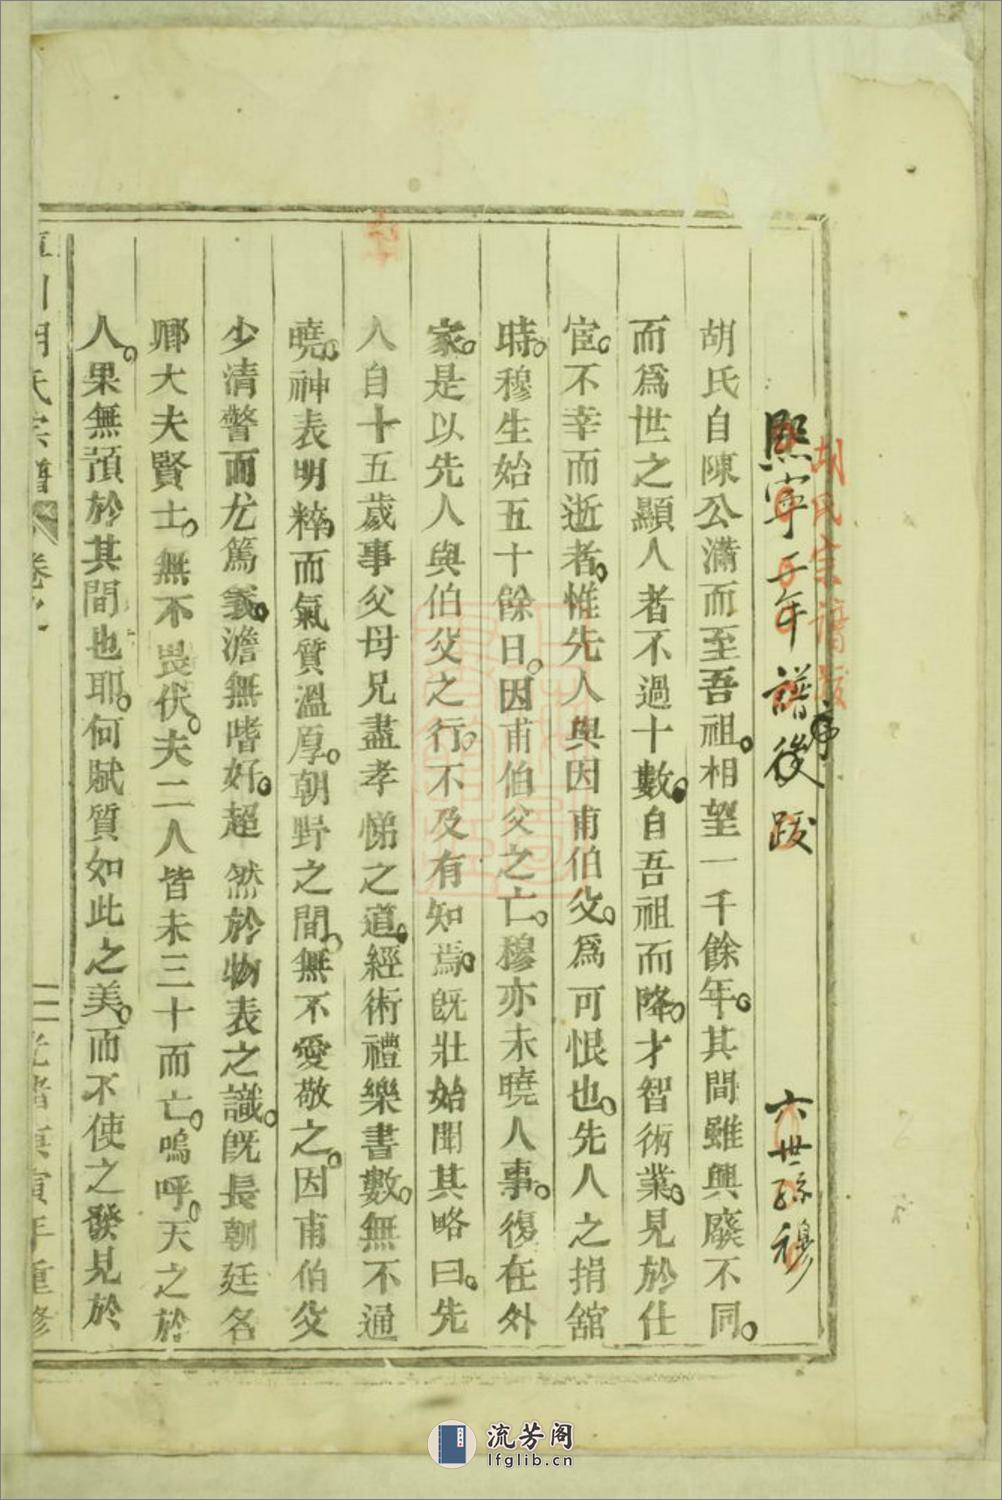 胡氏宗譜
序
熙寧壬年譜後跋　六世孫穆
胡氏自陳公滿而至吾祖。相望一千餘年。其間雖興廢不同。
而爲世之顯人者不過十數。自吾祖而降。才智術業。見於仕
宦。不幸而逝者。惟先人與因甫伯父。爲可恨也。先人之捐舘
時。穆生始五十餘日。因甫伯父之亡。穆亦未曉人事。復在外
家。是以先人與伯父之行。不及有知焉。旣壯始聞其略曰。先
人自十五歲事父母兄盡孝悌之道。經術禮樂書數。無不通
曉。神表明粹。而氣質溫厚。朝野之間。無不愛敬之。因甫伯父
少清警而尤篤義。澹無嗜好。超然於物表之識。旣長朝廷名
卿大夫賢士。無不畏伏。夫二人皆未三十而亡。嗚呼。天之於
人。果無預於其間也耶。何賦質如此之美。而不使之發見於
川胡氏宗譜　卷之　二　光緒庚寅年重修
流芳阁
lfglib.cn